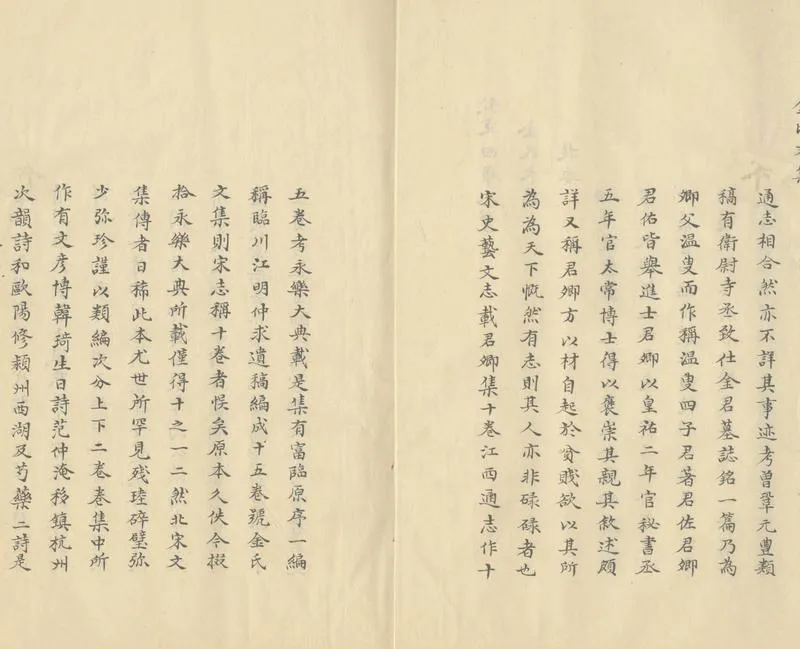 通志相合然亦不詳其事迹考曾鞏元豐類
稿有衛尉寺丞致仕金君墓誌銘一篇乃為
卿父温叟而作稱温叟四子君著君佐君卿
君佑皆舉進士君卿以皇祐二年官秘書丞
五年官太常博士得以褒崇其親其敘述頗
詳又稱君卿方以材自起於貧賤欲以其所
為為天下慨然有志則其人亦非碌碌者也
宋史藝文志載君卿集十卷江西通志作十
五卷考永樂大典載是集有富臨原序一編
稱臨川江明仲求遺稿編成十五卷號金氏
文集則宋志稱十卷者悮矣原本久佚今掇
拾永樂大典所載僅得十之一二然北宋文
集傳者日稀此本尤世所罕見残珪碎璧弥
少弥珍謹以類編次分上下二卷卷集中所
作有文彦博韓琦生日詩范仲淹移鎮杭州
次韻詩和歐陽修潁州西湖及芍藥二詩是